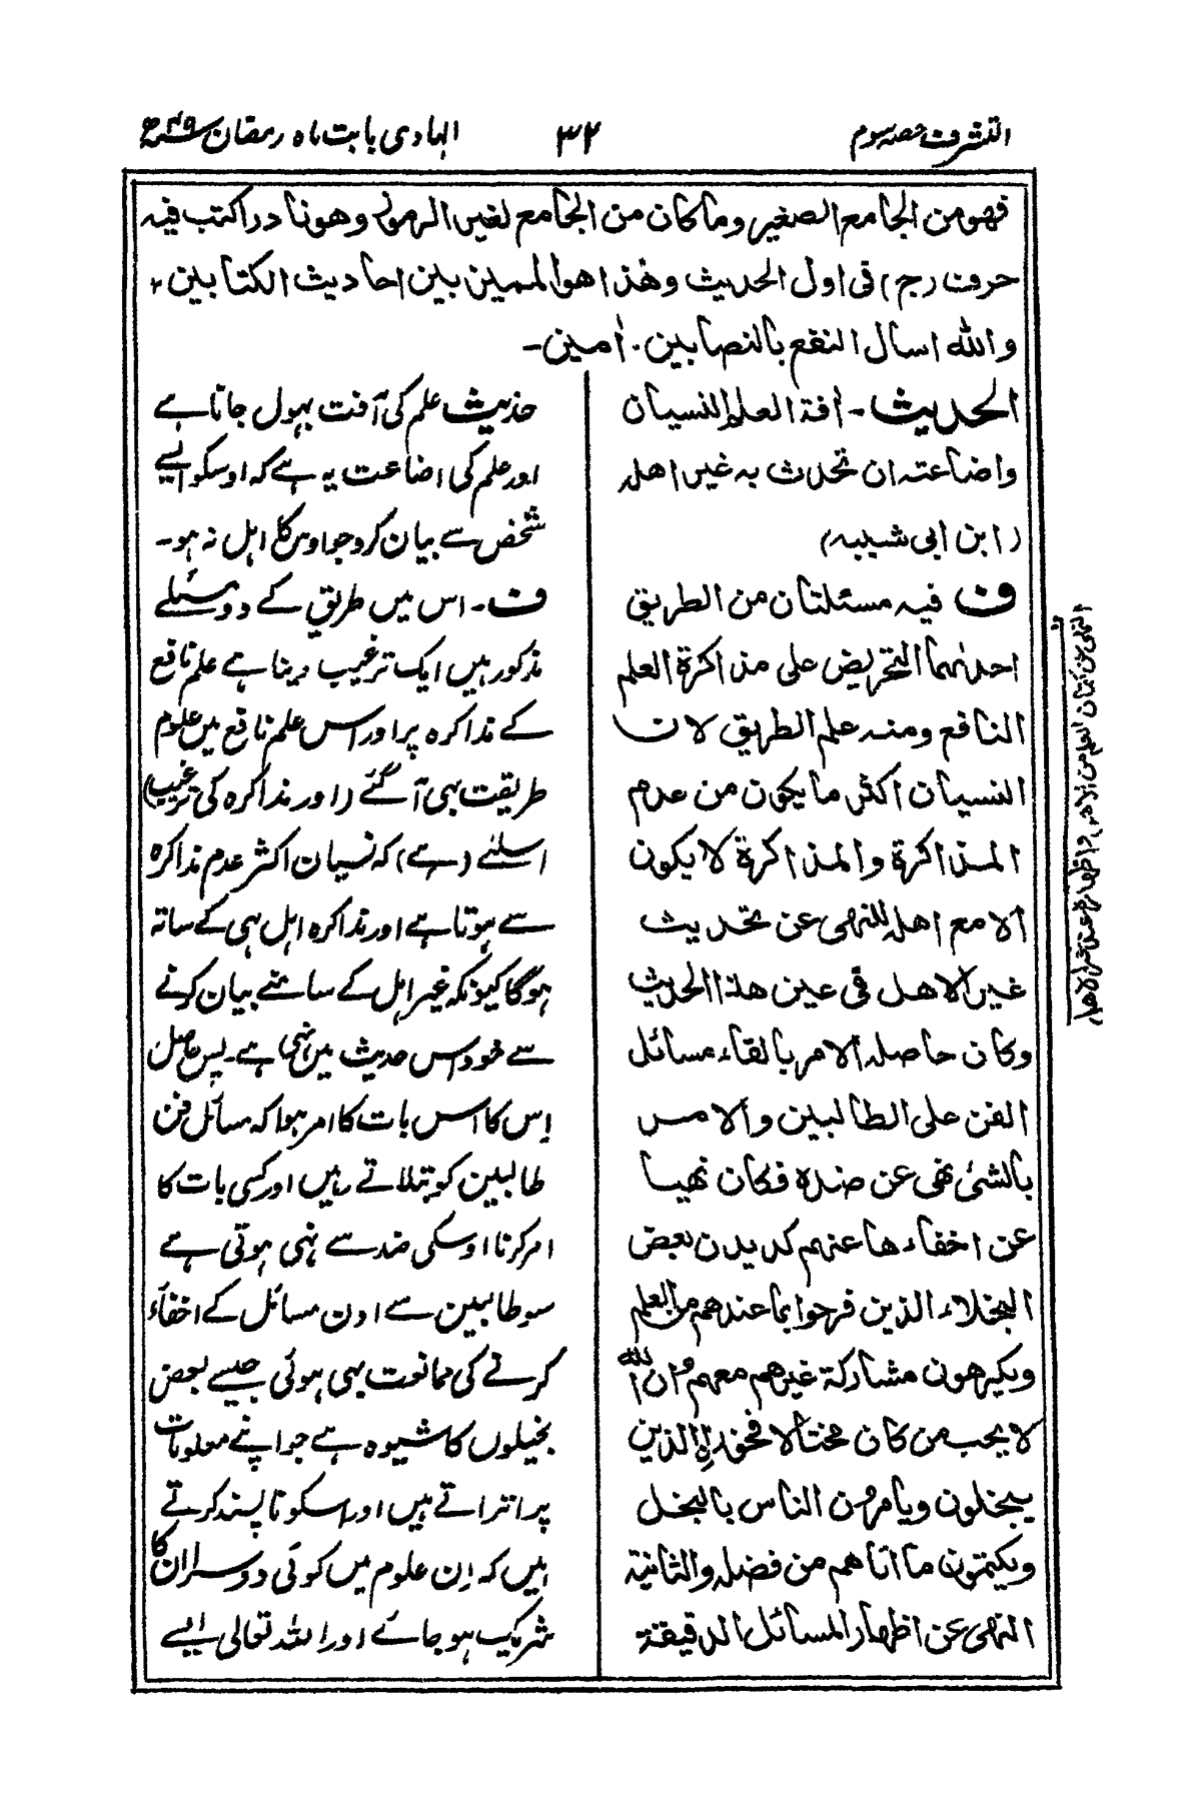 التشرف حصہ سوم
۳۲
الہادی بابت ماہ رمضان
فهو من الجامع الصغير وما كان من الجامع لغير الرموز وهو نادر اكتب فيه
حرف (ج) فى اول الحديث وهذا هو المميز بين احاديث الكتابين ۱۲
والله اسال النفع بالنصابين. اٰمين ـ
الحديث ـ اٰفة العلم النسيان
واضاعته ان تحدث به غير اهله
(ابن ابى شيبه)
ف فيه مسئلتان من الطريق
احدٰهما التحريض على مذاكرة العلم
النافع ومنه علم الطريق لان
النسيان اكثر ما يكون من عدم
المذاكرة والمذاكرة لا يكون
الا مع اهله للنهى عن تحديث
غير الاهل فى عين هذا الحديث
وكان حاصله الامر بالقاء مسائل
الفن على الطالبين والامر
بالشئ نهى عن ضده فكان نهيا
عن اخفاءها عنهم كديدن بعض
البخلاء الذين فرحوا بما عندهم من العلم
ويكرهون مشاركة غيرهم معهم وان الله
لا يحب من كان مختالا فخورا الذين
يبخلون ويامرون الناس بالبخل
ويكتمون ما اتاهم من فضله والثانية
النهى عن اظهار المسائل الدقيقة
حدیث علم کی آفت بہول جانا ہے
اور علم کی اضاعت یہ ہے کہ اوسکو ایسے
شخص سے بیان کرو جو اوس کا اہل نہ ہو۔
ف۔ اس میں طریق کے دو مسئلے
مذکور ہیں ایک ترغیب دینا ہے علم نافع
کے مذاکرہ پر اور اس علم نافع میں علوم
طریقت بہی آ گئے (اور مذاکرہ کی ترغیب)
اسلئے (ہے) کہ نسیان اکثر عدم مذاکرہ
سے ہوتا ہے اور مذاکرہ اہل ہی کے ساتہ
ہوگا کیونکہ غیر اہل کے سامنے بیان کرنے
سے خود اس حدیث میں نہی ہے۔ پس حاصل
اِس کا اس بات کا امر ہوا کہ مسائل فن
طالبین کو بتلاتے رہیں اور کسی بات کا
امر کرنا اوسکی ضد سے نہی ہوتی ہے
سو طالبین سے اون مسائل کے اخفاء
کرنے کی ممانعت بہی ہوئی جیسے بعض
بخیلوں کا شیوہ ہے جو اپنے معلومات
پر اتراتے ہیں اور اسکو ناپسند کرتے
ہیں کہ اِن علوم میں کوئی دوسرا ان کا
شریک ہو جائے اور اللہ تعالی ایسے
النهى عن كتمان العلم من الاهل واظهاره عند غير الاهل